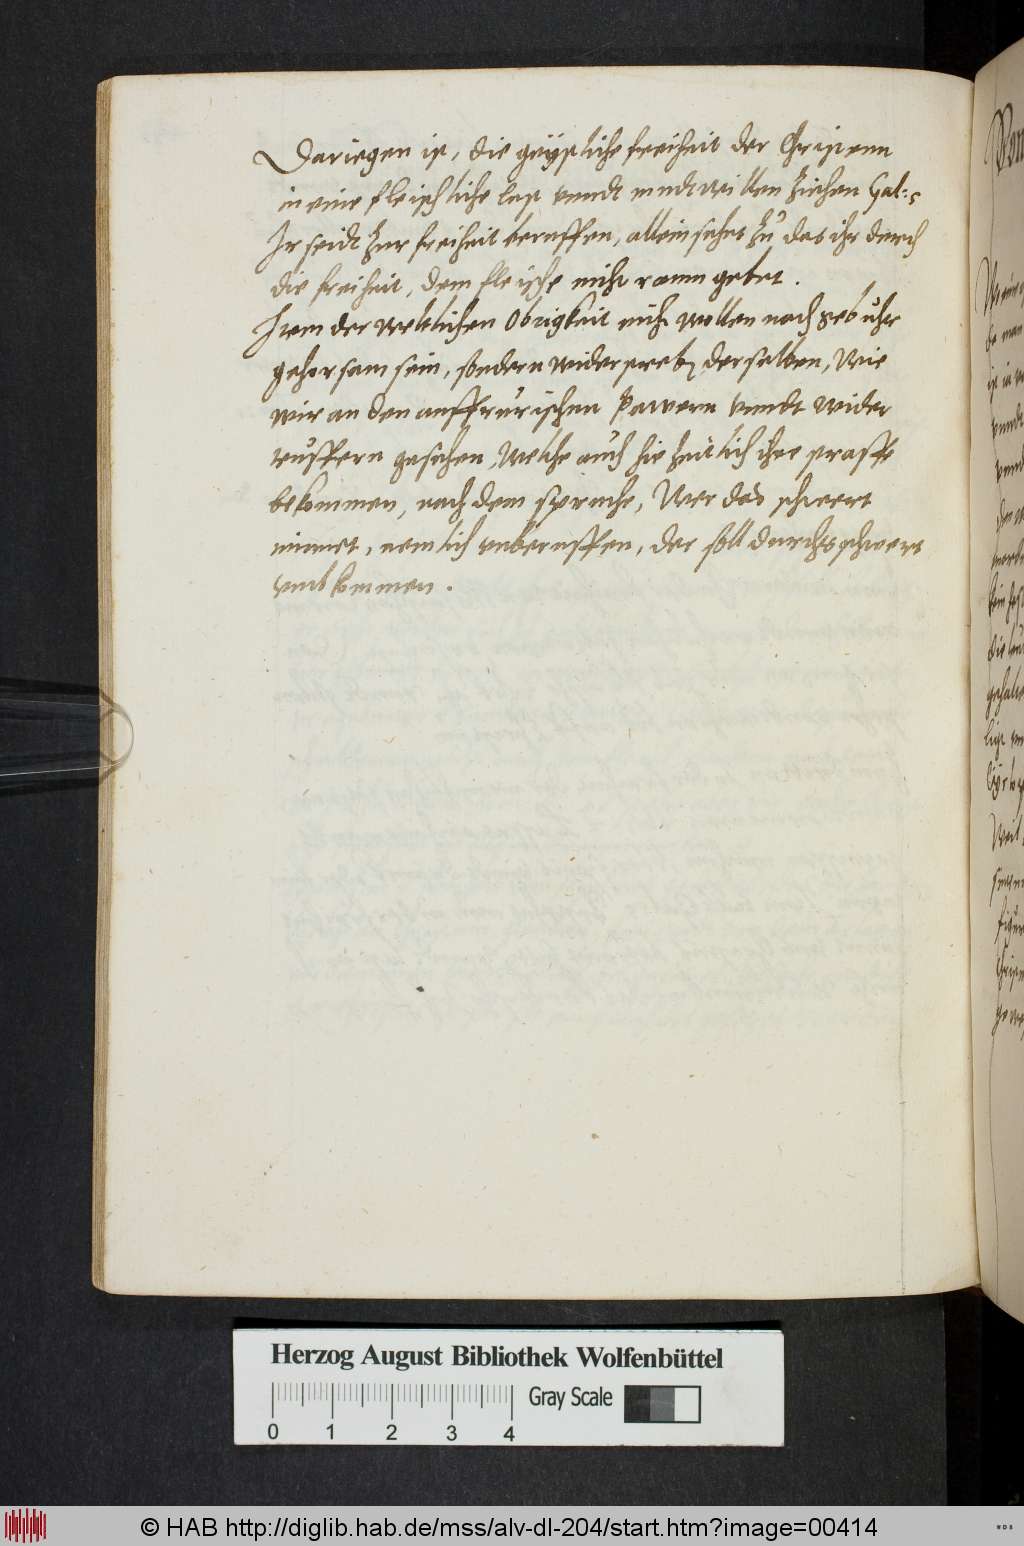 Dariegen ist, die geystliche freiheit der Christenn
in eine fleischliche lust vnndt mudtwillen ziehen Gal: 5
Ir seidt zur freiheit beruffen, allein sehet zu das ihr durch
die freiheit, dem fleische nicht raum gebet.
Item der weltlichen Obrigkeit nicht wollen nach gebuhr
gehorsam sein, sondern widerstreben derselben, Wie
wir an den auffrurischen Pawern vnndt wider
teuffern gesehen, Welche auch hie zeitlich ihre straffe
bekommen, nach dem spruche, Wer das schwert
nimmet, nemlich vnberuffen, der soll durchs schwert
vmbkommen.
Herzog August Bibliothek Wolfenbüttel
0 1 2 3 4 Gray Scale
© HAB http://diglib.hab.de/mss/alv-dl-204/start.htm?image=00414